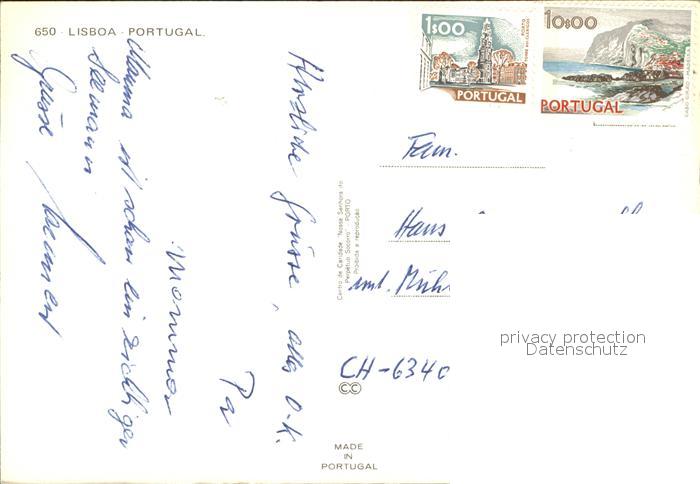 650 - LISBOA - PORTUGAL.
Herzliche Grüsse, alles O.K.
Pa
Mamma
Mamma ist schon ein richtiger
Seemann
Grüsse
1$00
PORTUGAL
10$00
PORTUGAL
Fam.
Hans
unt. Mühl
CH-6340
Centro de Caridade "Nossa Senhora do
Perpétuo Socorro" PORTO
Proibida a reprodução
CC
MADE
IN
PORTUGAL
privacy protection
Datenschutz